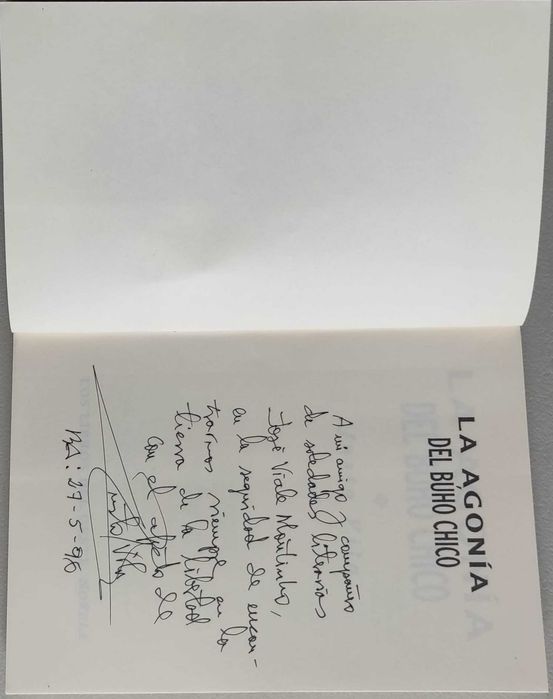 LA AGONÍA
DEL BÚHO CHICO
A mi amigo y compañero
de soledades literarias
José Viale Moutinho,
en la seguridad de encon-
trarnos siempre en la
tierra de la libertad
con el afecto de
27-5-96